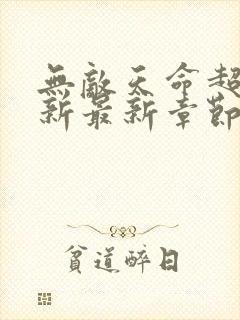 無敵天命超
新最新章節
貧道醉日